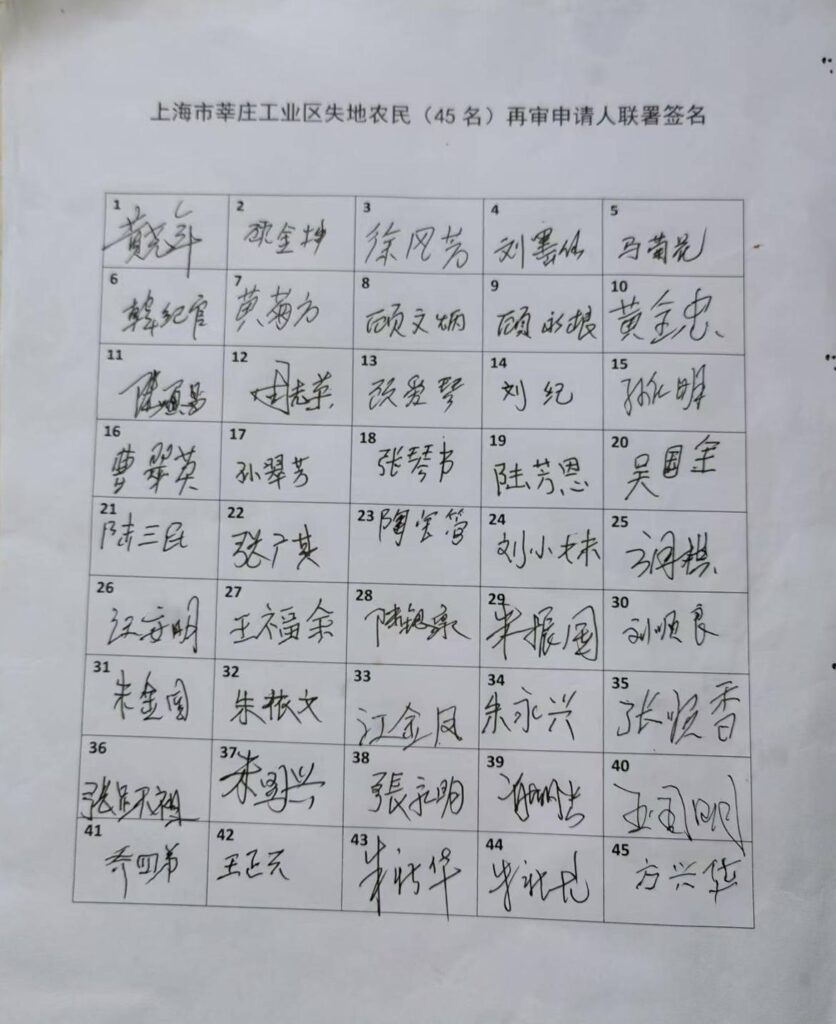 上海市莘庄工业区失地农民（45名）再审申请人联署签名
1 2 3 4 5
徐凤芳 刘墨仙 马菊花
6 7 8 9 10
韩纪官 黄菊方 顾文炳 顾永根 黄金忠
11 12 13 14 15
顾爱琴 刘纪 孙仁明
16 17 18 19 20
曹翠英 孙翠芳 张琴 陆芳恩 吴国金
21 22 23 24 25
陆三民 张广其 陶 刘小妹
26 27 28 29 30
汪安明 王福余 陆 朱振国 刘顺良
31 32 33 34 35
朱金国 朱振文 江金凤 朱永兴 张顺香
36 37 38 39 40
朱 兴 張永明
41 42 43 44 45
乔四弟 王正云 朱新华 朱 方兴华